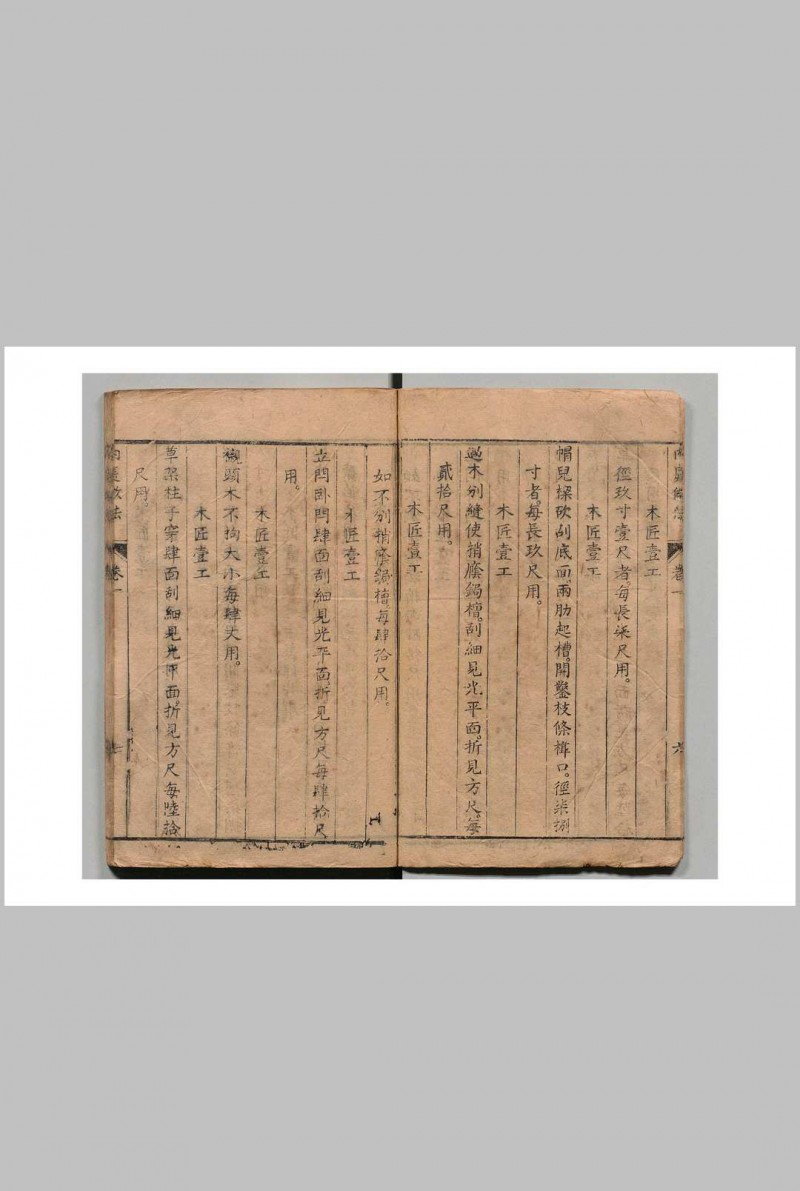 木匠壹工
徑玖寸壹尺者。每長柒尺用。
木匠壹工
帽兒樑砍刮底面。兩肋起槽。開鑿枝條榫口。徑柒捌
寸者。每長玖尺用。
木匠壹工
過木別縫使捎
鍚槽。刮細見光平面。折見方尺。每
貳拾尺用。
木匠壹工
如不別
槽。每肆拾尺用。
木匠壹工
立閂卧閂肆面刮細見光平面。折見方尺每肆拾尺
用。
木匠壹工
襯頭木不拘大小每肆丈用。
木匠壹工
草架柱子穿肆面刮細見光平面。折見方尺每陸拾
尺用。
卷一
六
卷一
七